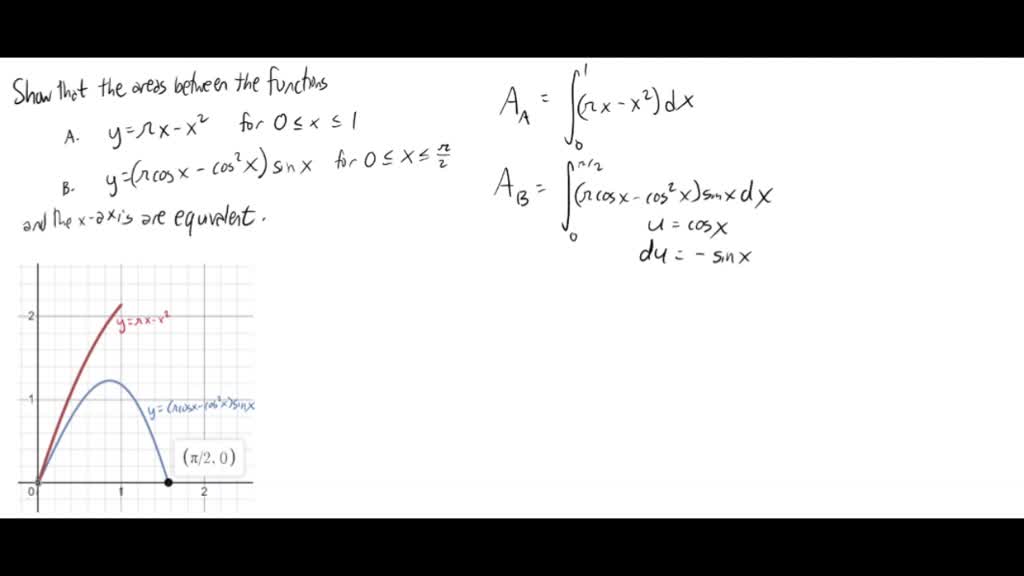 Show that the areas between the functions
A. y=πx-x² for 0≤x≤1
B. y=(πcosx-cos²x)sinx for 0≤x≤π/2
and the x-axis are equivalent.
A_A = ∫₀¹(πx-x²)dx
A_B = ∫₀^π/2(πcosx-cos²x)sinxdx
u=cosx
du=-sinx
2
y=πx-x²
1
y=(πcosx-cos²x)sinx
(π/2, 0)
0 1 2